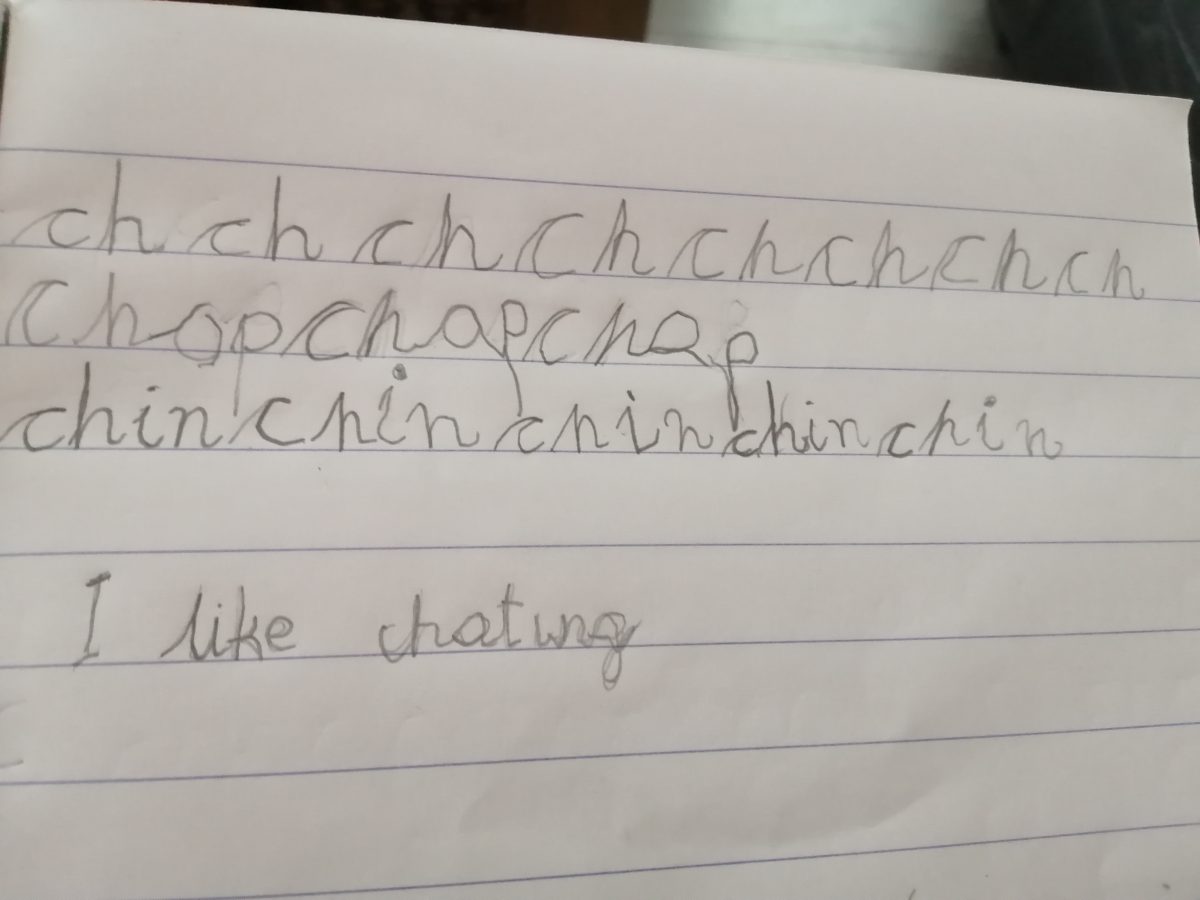 ch ch ch ch ch ch ch ch
chop chop chop
chin chin chin chin chin
I like chating